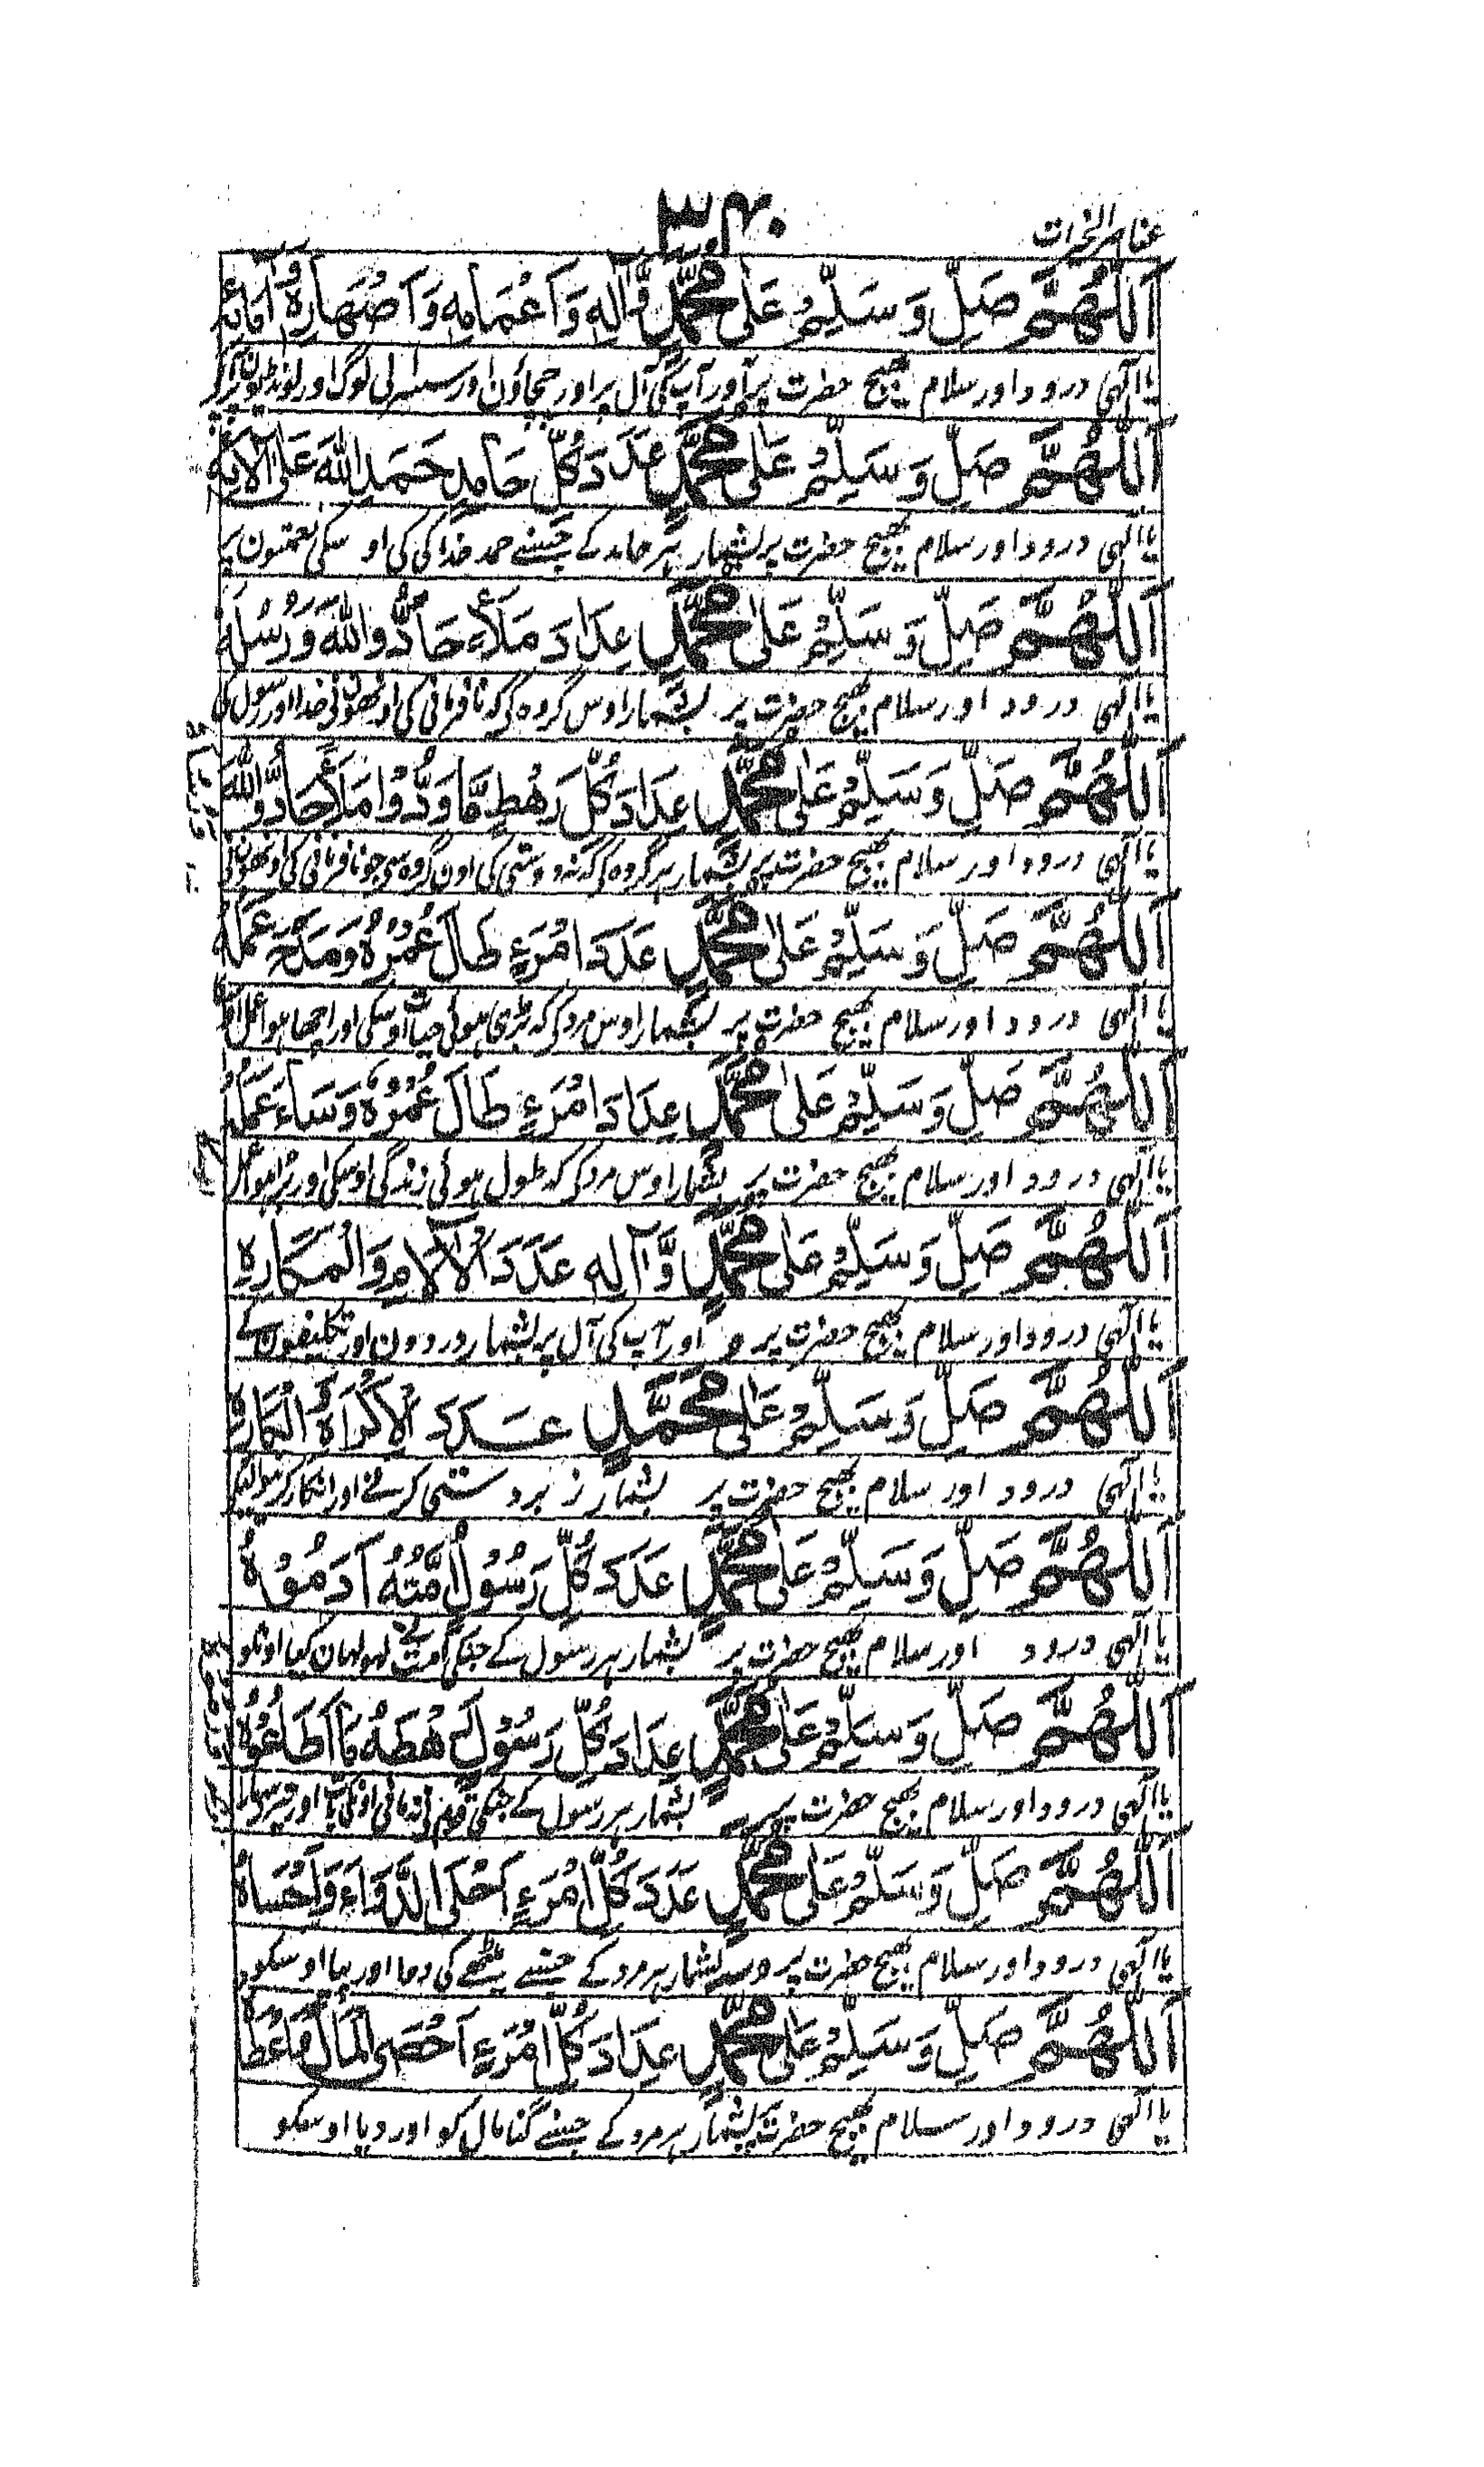 ۳۴۰
عناصر الخیرات
اَللّٰهُمَّ صَلِّ وَسَلِّمْ عَلٰی مُحَمَّدٍ وَّاٰلِهٖ وَاَعْمَامِهٖ وَاَصْهَارِهٖ وَاِمَائِهٖ
یا الٰہی درود اور سلام بھیج حضرت پر اور آپ کی آل پر اور چچاؤن اور سسرالی لوگ اور لونڈیون پر آپکے
اَللّٰهُمَّ صَلِّ وَسَلِّمْ عَلٰی مُحَمَّدٍ عَدَدَ كُلِّ حَامِدٍ حَمِدَ اللّٰهَ عَلٰی اٰلَائِهٖ
یا الٰہی درود اور سلام بھیج حضرت پر بشمار ہر حامد کے جسنے حمد خدا کی کی اوسکی نعمتون پر
اَللّٰهُمَّ صَلِّ وَسَلِّمْ عَلٰی مُحَمَّدٍ عَدَدَ مَلَاءٍ حَادُّوا اللّٰهَ وَرُسُلَهٗ
یا الٰہی درود اور سلام بھیج حضرت پر بشمار اوس گروہ کی کہ نافرمانی کی اونھون نی خدا اور رسول کی
اَللّٰهُمَّ صَلِّ وَسَلِّمْ عَلٰی مُحَمَّدٍ عَدَدَ كُلِّ رَهْطٍ مَّا وَدُّوْا مَلَاءً حَادُّوا اللّٰهَ
یا الٰہی درود اور سلام بھیج حضرت پر بشمار ہر گروہ کی کہ نہ دوستی کی اون گروہ سی جو نافرمانی کی اونھون نی
اَللّٰهُمَّ صَلِّ وَسَلِّمْ عَلٰی مُحَمَّدٍ عَدَدَ امْرَءٍ طَالَ عُمْرُهٗ وَمَدَحَ عَمَلُهٗ
یا الٰہی درود اور سلام بھیج حضرت پر بشمار اوس مرد کی کہ بڑی ہوئی حیات اوسکی اور اچھا ہوا عمل اوسکا
اَللّٰهُمَّ صَلِّ وَسَلِّمْ عَلٰی مُحَمَّدٍ عَدَدَ امْرَءٍ طَالَ عُمْرُهٗ وَسَاءَ عَمَلُهٗ
یا الٰہی درود اور سلام بھیج حضرت پر بشمار اوس مرد کی کہ طول ہوئی زندگی اوسکی اور برا ہوا عمل
اَللّٰهُمَّ صَلِّ وَسَلِّمْ عَلٰی مُحَمَّدٍ وَّاٰلِهٖ عَدَدَ الْاٰلَامِ وَالْمَكَارِهِ
یا الٰہی درود اور سلام بھیج حضرت پر و اور آپ کی آل پر بشمار دردون اور تکلیفون کے
اَللّٰهُمَّ صَلِّ وَسَلِّمْ عَلٰی مُحَمَّدٍ عَدَدَ الْاِكْرَاهِ
یا الٰہی درود اور سلام بھیج حضرت پر بشمار زبردستی کرنے اور انکار کرنیوالیکے
اَللّٰهُمَّ صَلِّ وَسَلِّمْ عَلٰی مُحَمَّدٍ عَدَدَ كُلِّ رَسُوْلٍ اُمَّتُهٗ اَدْمُوْهُ
یا الٰہی درود اور سلام بھیج حضرت پر بشمار ہر رسول کے جنکی امت نے لہولہان کیا اونکو
اَللّٰهُمَّ صَلِّ وَسَلِّمْ عَلٰی مُحَمَّدٍ عَدَدَ كُلِّ رَسُوْلٍ رَهْطُهٗ مَا اَطَاعُوْهُ
یا الٰہی درود اور سلام بھیج حضرت پر بشمار ہر رسول کے جنکی قوم نی نہ مانی اونکی بات اور
اَللّٰهُمَّ صَلِّ وَسَلِّمْ عَلٰی مُحَمَّدٍ عَدَدَ كُلِّ امْرَءٍ اَحْلَی الدَّوَاءَ وَاَحْسَاهُ
یا الٰہی درود اور سلام بھیج حضرت پر بشمار ہر مرد کے جسنے میٹھے کی دوا اور پیا اوسکو
اَللّٰهُمَّ صَلِّ وَسَلِّمْ عَلٰی مُحَمَّدٍ عَدَدَ كُلِّ امْرَءٍ اَحْصَی الْمَالَ وَاَعْطَاهُ
یا الٰہی درود اور سلام بھیج حضرت پر بشمار ہر مرد کے جسنے گنا مال کو اور دیا اوسکو